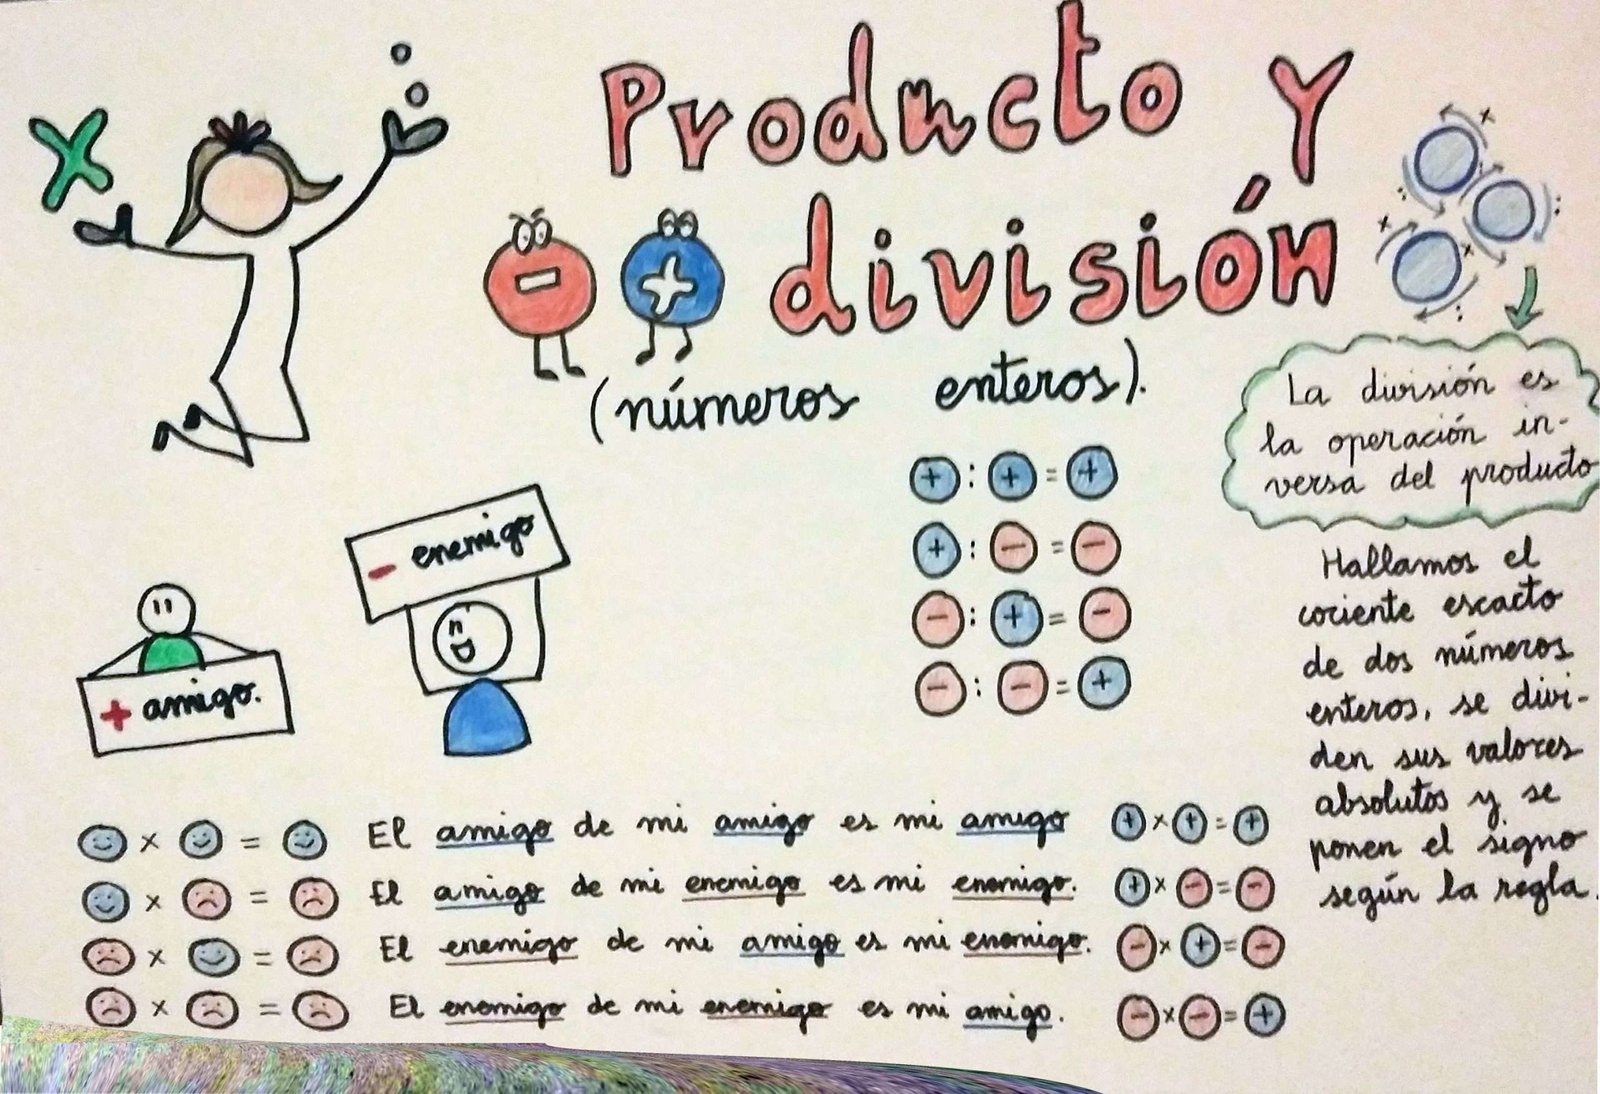 Producto y
división
(números enteros).
+ : + = +
+ : - = -
- : + = -
- : - = +
La división es
la operación in-
versa del producto
Hallamos el
cociente escacto
de dos números
enteros, se divi-
den sus valores
absolutos y se
ponen el signo
según la regla.
- enemigo
+ amigo.
× = El amigo de mi amigo es mi amigo + × + = +
× = El amigo de mi enemigo es mi enemigo. + × - = -
× = El enemigo de mi amigo es mi enemigo. - × + = -
× = El enemigo de mi enemigo es mi amigo. - × - = +